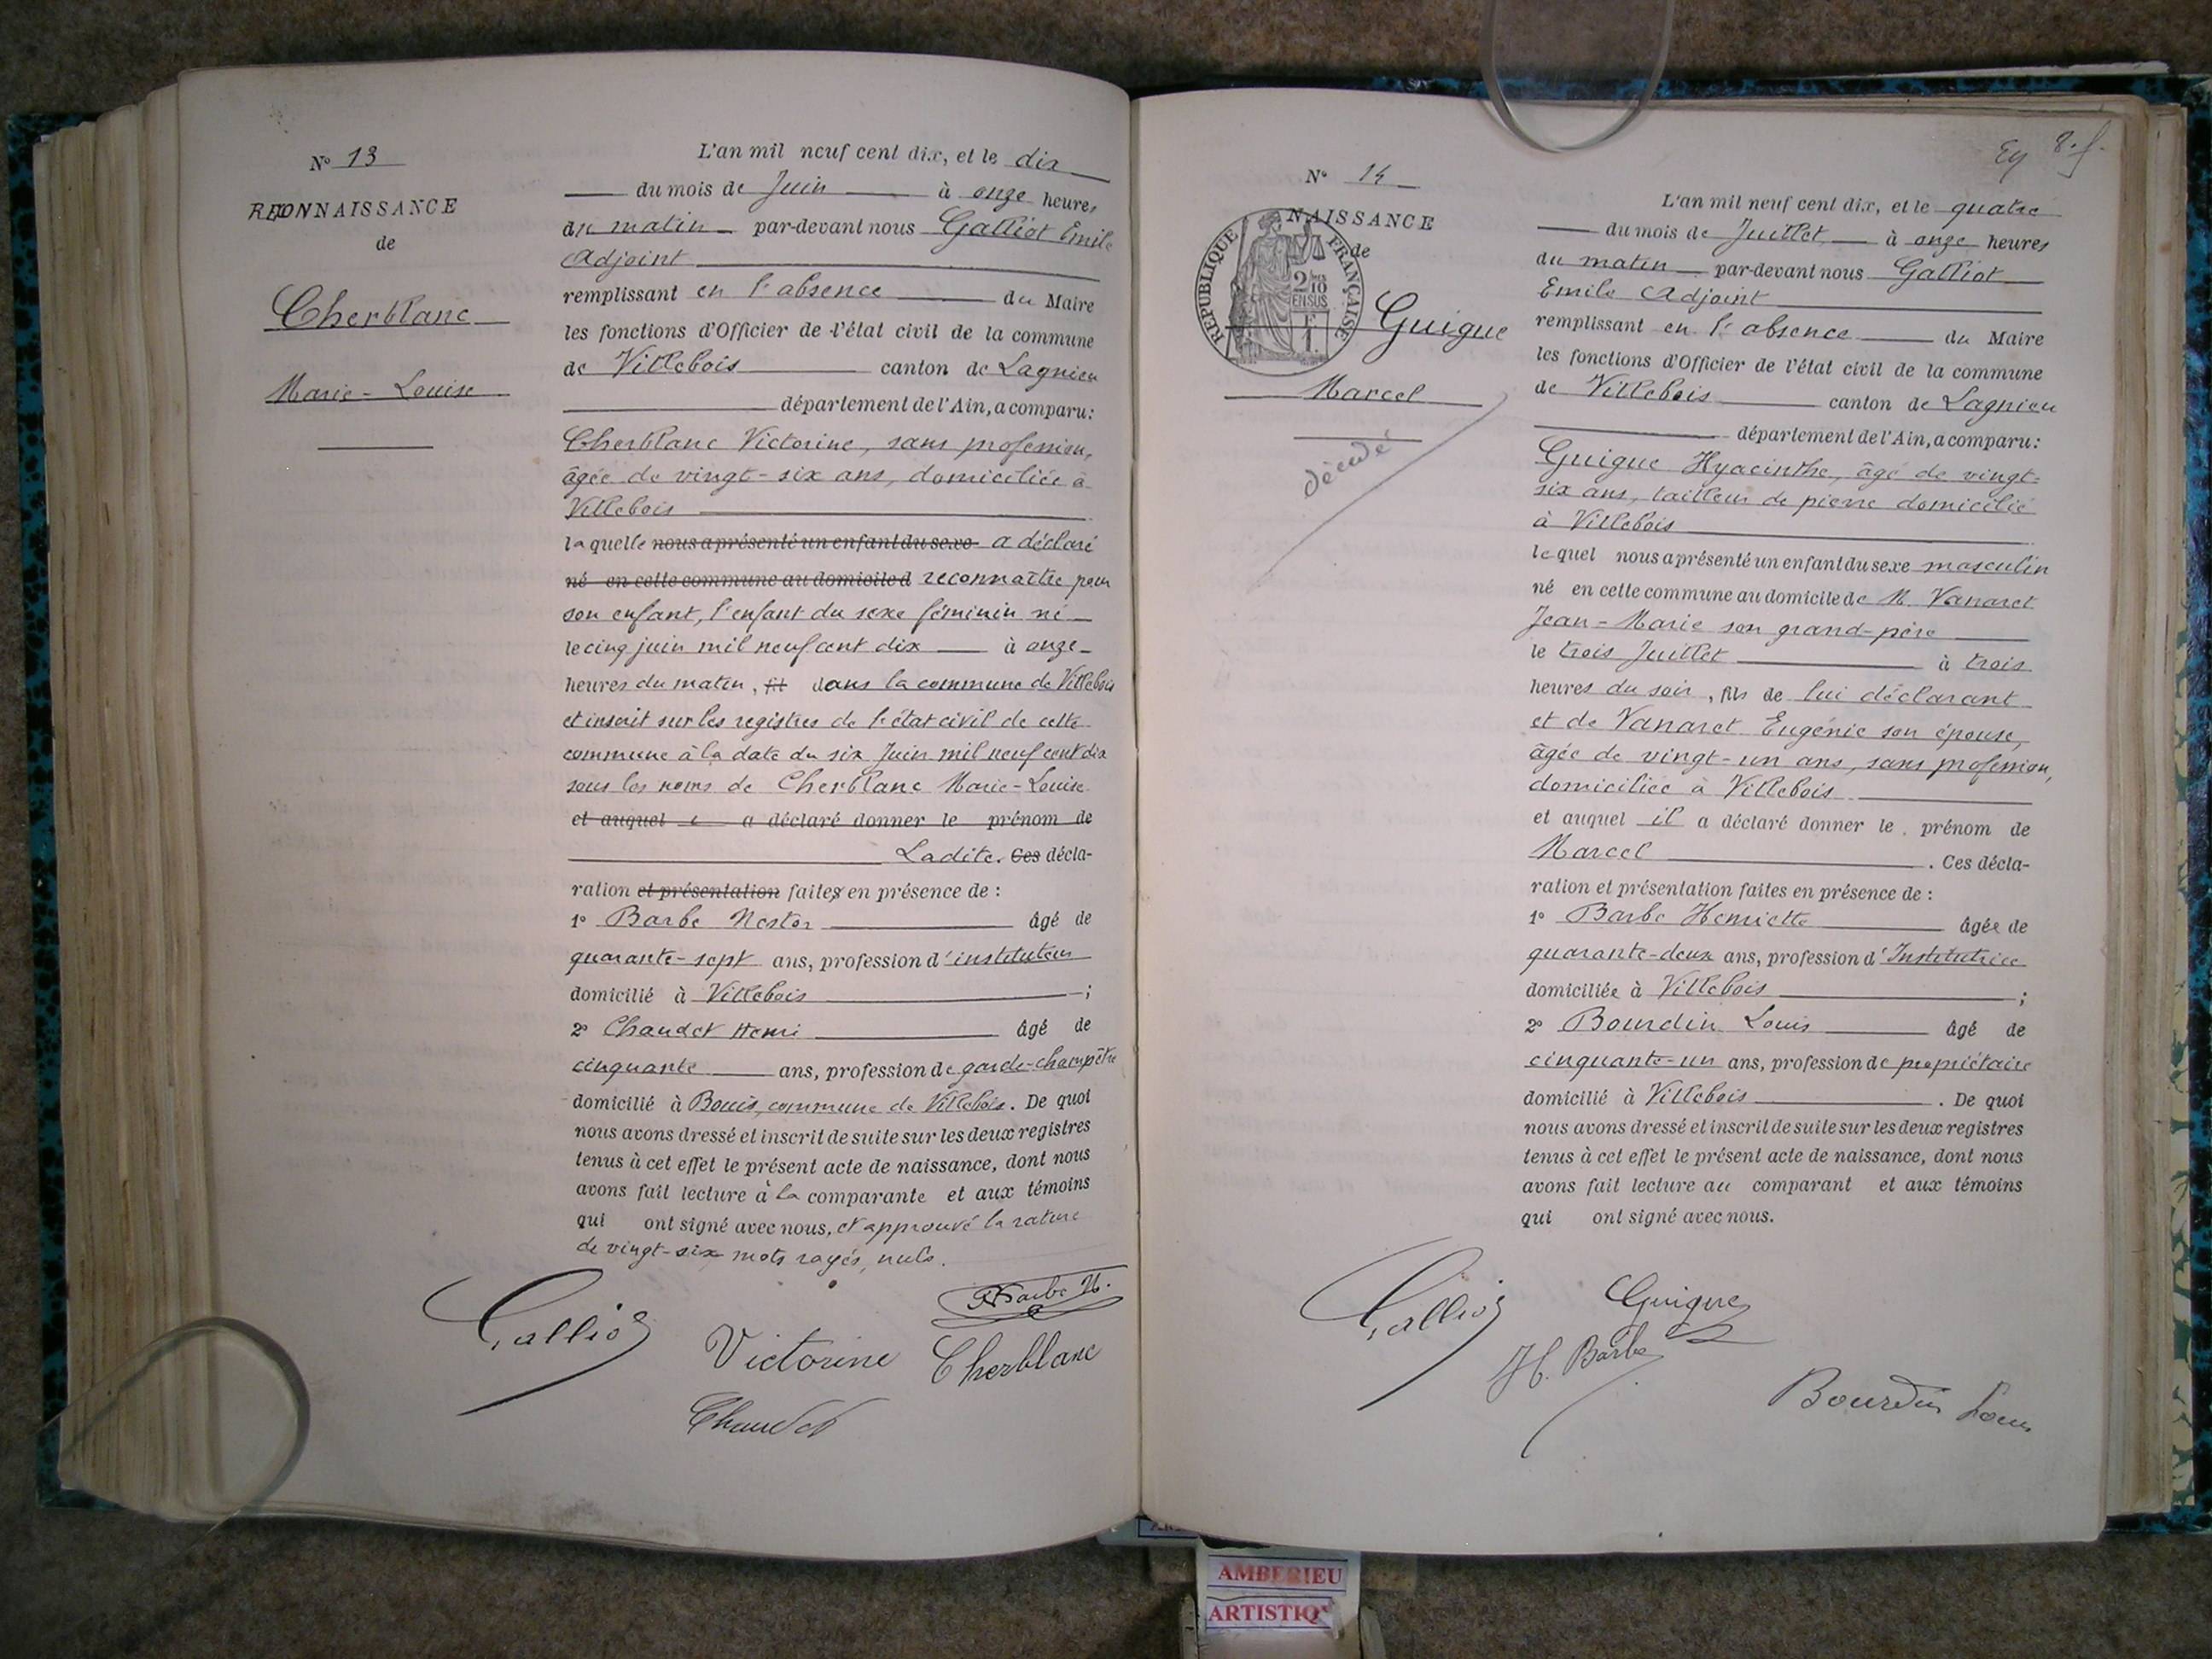 N° 13
RECONNAISSANCE
de
Cherblanc
Marie-Louise
L'an mil neuf cent dix, et le dix
du mois de Juin à onze heures
du matin par-devant nous Galliot Emile
Adjoint
remplissant en l'absence du Maire
les fonctions d'Officier de l'état civil de la commune
de Villebois canton de Lagnieu
département de l'Ain, a comparu:
Cherblanc Victorine, sans profession,
âgée de vingt-six ans, domiciliée à
Villebois
laquelle nous a présenté un enfant du sexe a déclaré
né en cette commune au domicile d reconnaître pour
son enfant, l'enfant du sexe féminin né
le cinq juin mil neuf cent dix à onze
heures du matin, fil dans la commune de Villebois
et inscrit sur les registres de l'état civil de cette
commune à la date du six Juin mil neuf cent dix
sous les noms de Cherblanc Marie-Louise
et auquel e a déclaré donner le prénom de
Ladite. Ces décla-
ration et présentation faites en présence de :
1° Barbe Nestor âgé de
quarante-sept ans, profession d'instituteur
domicilié à Villebois ;
2° Chaudet Henri âgé de
cinquante ans, profession de garde-champêtre
domicilié à Bouis, commune de Villebois. De quoi
nous avons dressé et inscrit de suite sur les deux registres
tenus à cet effet le présent acte de naissance, dont nous
avons fait lecture à la comparante et aux témoins
qui ont signé avec nous, et approuvé la rature
de vingt-six mots rayés, nuls.
Galliot
Barbe N.
Victorine Cherblanc
Chaudet
8. f.
N° 14
NAISSANCE
de
REPUBLIQUE FRANÇAISE
2/10
EN SUS
1 F
Guigue
Marcel
décédé
L'an mil neuf cent dix, et le quatre
du mois de Juillet à onze heures
du matin par-devant nous Galliot
Emile Adjoint
remplissant en l'absence du Maire
les fonctions d'Officier de l'état civil de la commune
de Villebois canton de Lagnieu
département de l'Ain, a comparu:
Guigue Hyacinthe, âgé de vingt-
six ans, tailleur de pierre domicilié
à Villebois
lequel nous a présenté un enfant du sexe masculin
né en cette commune au domicile de M. Vanaret
Jean-Marie son grand-père
le trois Juillet à trois
heures du soir, fils de lui déclarant
et de Vanaret Eugénie son épouse,
âgée de vingt-un ans, sans profession,
domiciliée à Villebois
et auquel il a déclaré donner le prénom de
Marcel . Ces décla-
ration et présentation faites en présence de :
1° Barbe Henriette âgée de
quarante-deux ans, profession d'Institutrice
domiciliée à Villebois ;
2° Bourdin Louis âgé de
cinquante-un ans, profession de propriétaire
domicilié à Villebois . De quoi
nous avons dressé et inscrit de suite sur les deux registres
tenus à cet effet le présent acte de naissance, dont nous
avons fait lecture au comparant et aux témoins
qui ont signé avec nous.
Galliot
Guigue
H. Barbe
Bourdin Louis
AMBERIEU
ARTISTIQ